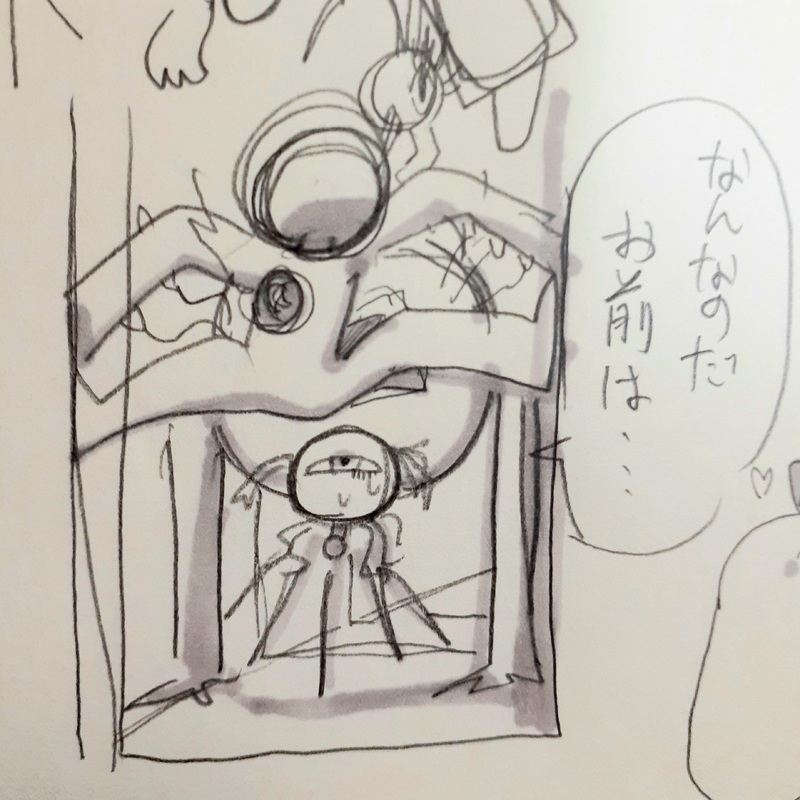 なんなのだ
お前は…